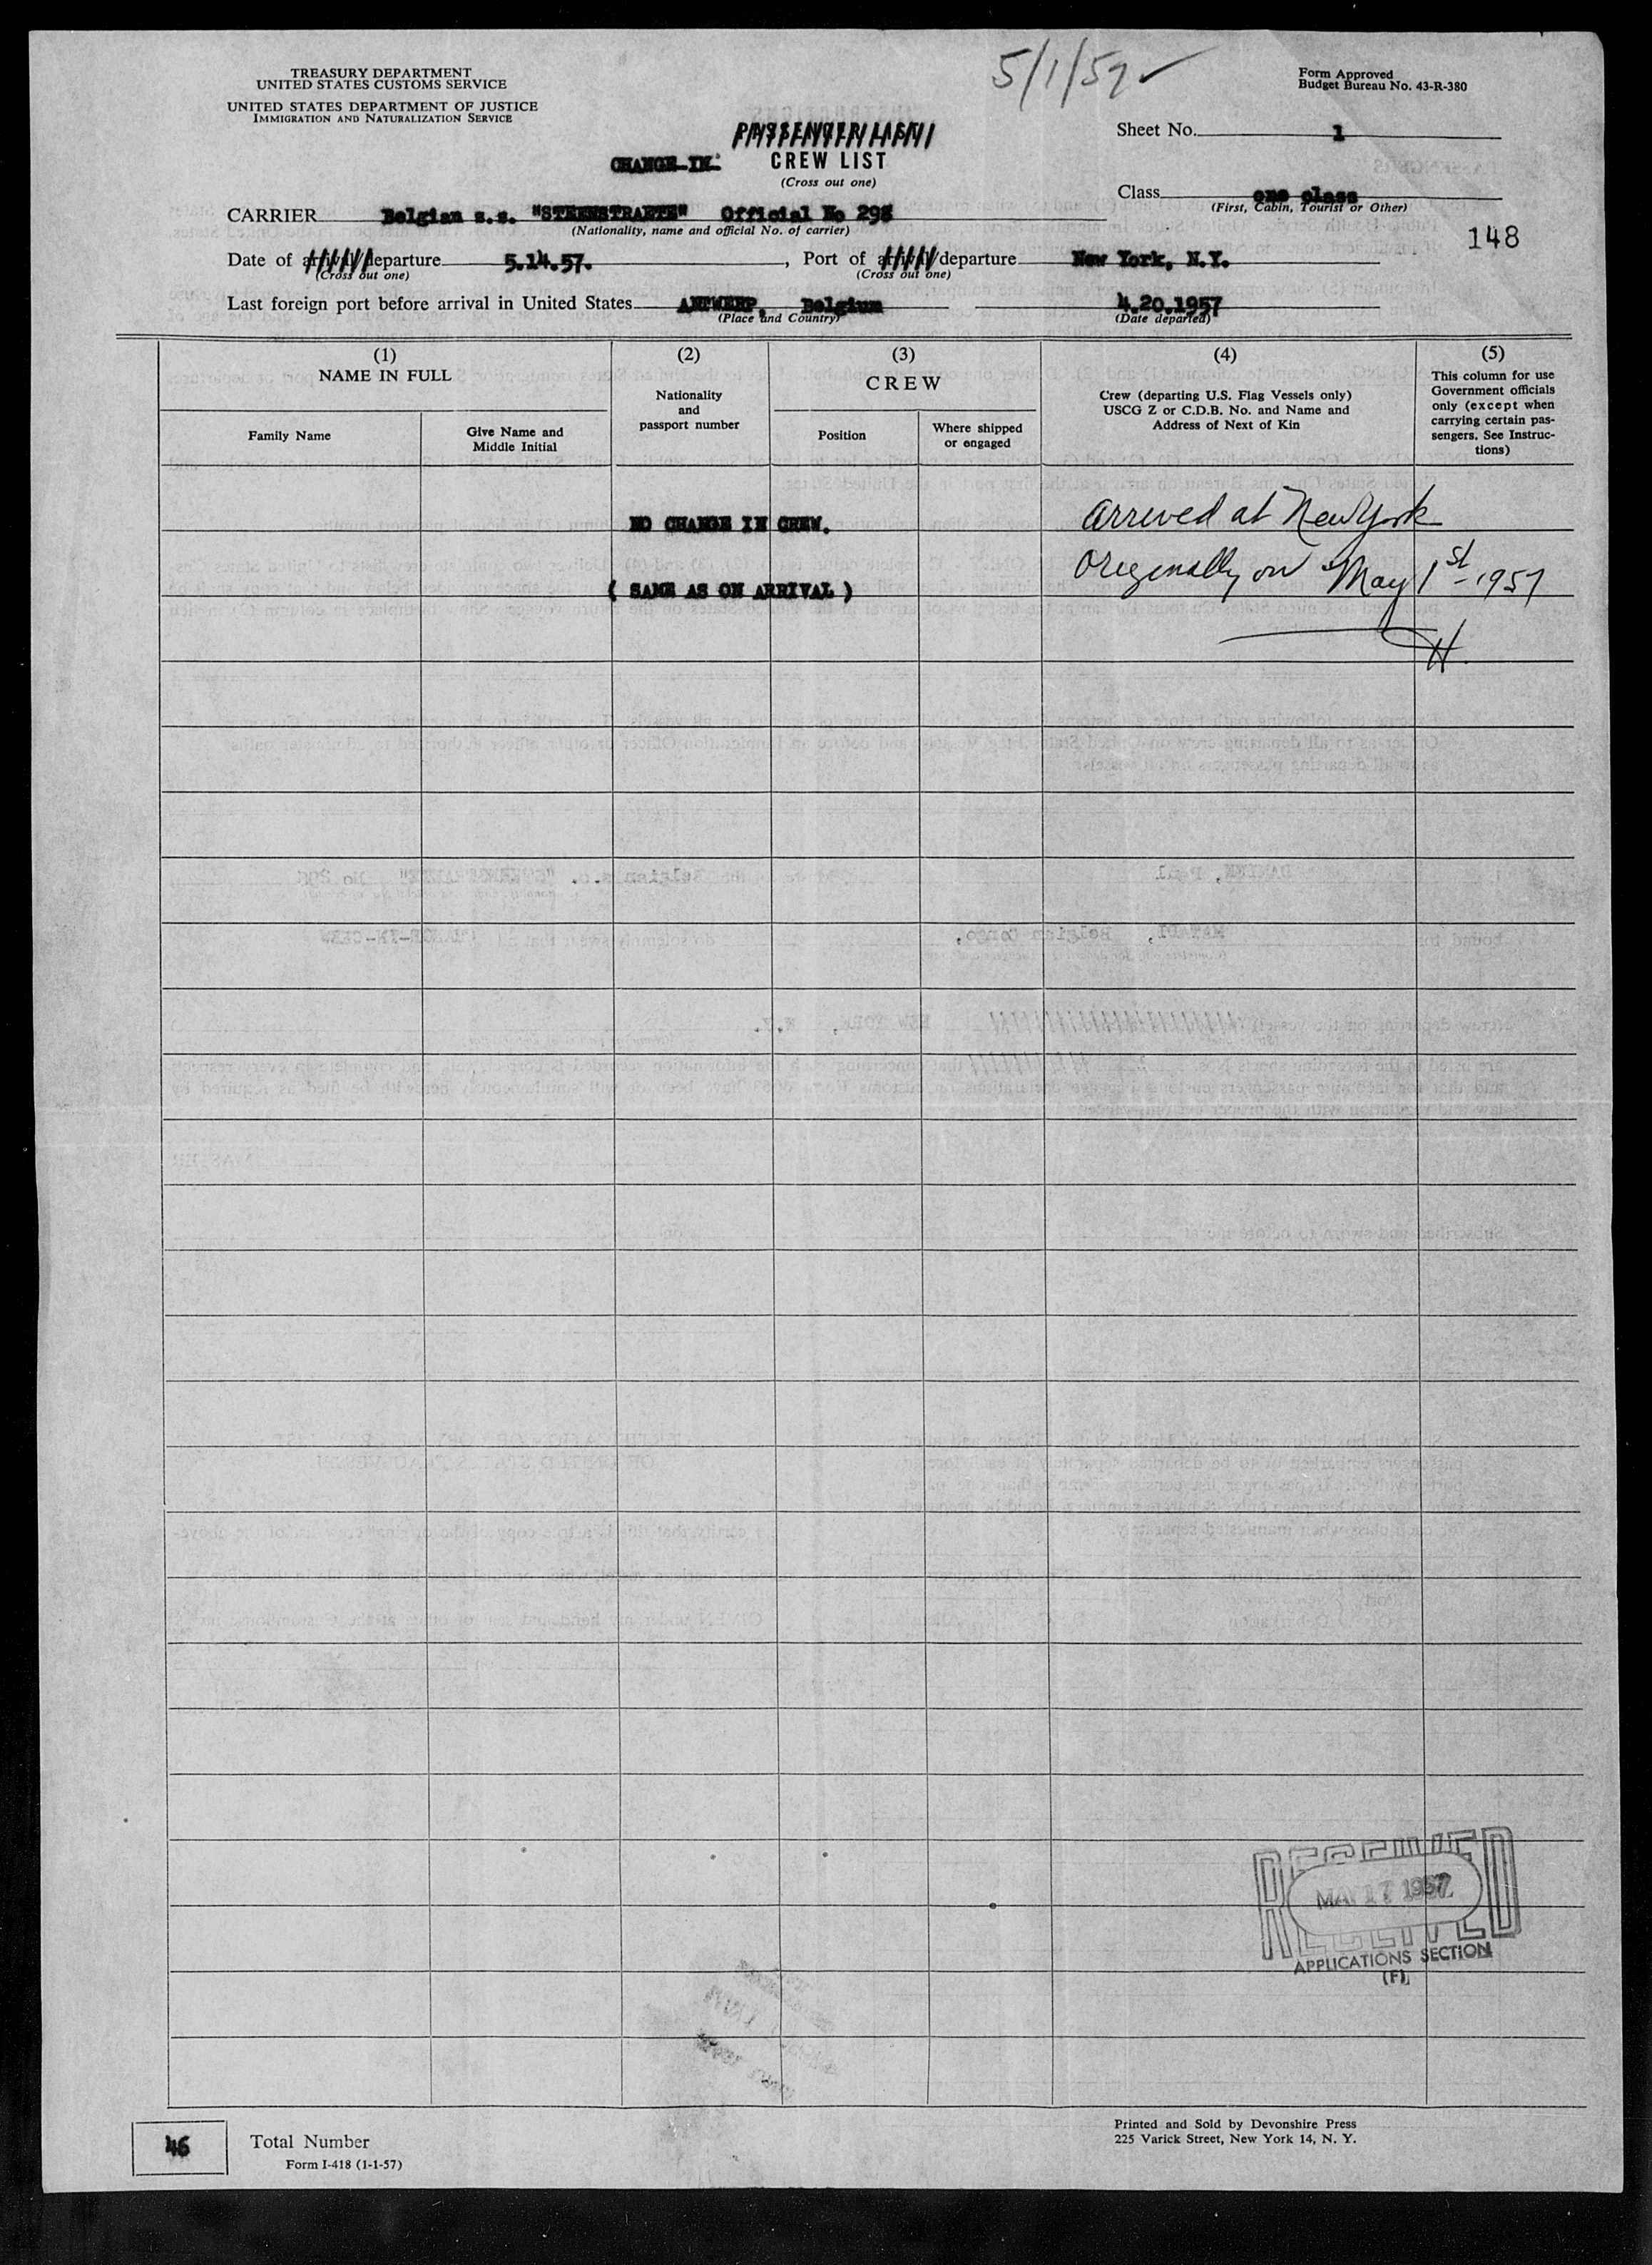 TREASURY DEPARTMENT
UNITED STATES CUSTOMS SERVICE
UNITED STATES DEPARTMENT OF JUSTICE
IMMIGRATION AND NATURALIZATION SERVICE
5/1/57
Form Approved
Budget Bureau No. 43-R-380
Sheet No. 1
CHANGE-IN- CREW LIST
(Cross out one)
Class one class
(First, Cabin, Tourist or Other)
CARRIER Belgian s.s. "STEENSTRAETE" Official No 298
(Nationality, name and official No. of carrier)
148
Date of departure 5.14.57. , Port of departure New York, N.Y.
(Cross out one) (Cross out one)
Last foreign port before arrival in United States ANTWERP, Belgium 4.20.1957
(Place and Country) (Date departed)
(1) (2) (3) (4) (5)
NAME IN FULL
Nationality
and
passport number
CREW
Crew (departing U.S. Flag Vessels only)
USCG Z or C.D.B. No. and Name and
Address of Next of Kin
This column for use
Government officials
only (except when
carrying certain pas-
sengers. See Instruc-
tions)
Family Name
Give Name and
Middle Initial
Position
Where shipped
or engaged
NO CHANGE IN CREW.
( SAME AS ON ARRIVAL )
Arrived at New York
Originally on May 1st 1957
H.
RECEIVED
MAY 17 1957
RECEIVED
APPLICATIONS SECTION
(F)
46
Total Number
Form I-418 (1-1-57)
Printed and Sold by Devonshire Press
225 Varick Street, New York 14, N. Y.